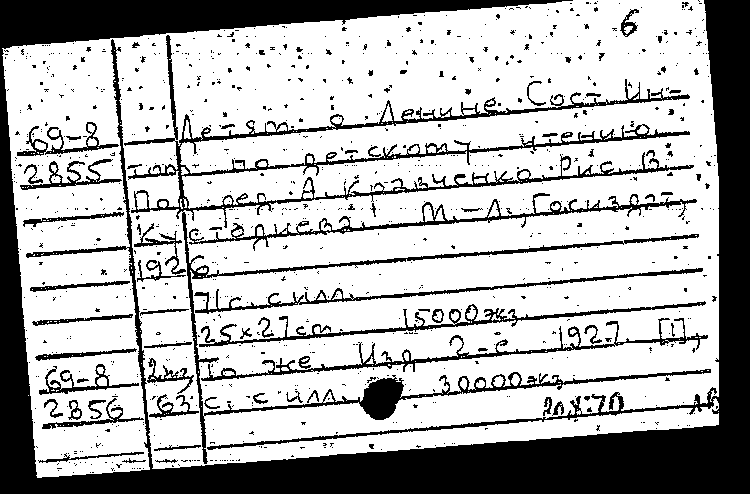 6
69-8 Детям о Ленине. Сост. Ин-
2855 том по детскому чтению.
Под ред. А. Кравченко. Рис. Б.
Кустодиева. М.-Л., Госиздат,
1926.
71 с. с илл.
25х27 cm. 15000 экз.
69-8 2экз То же. Изд. 2-е. 1927. [1],
2856 63 с. с илл. 30000 экз.
20.X.70